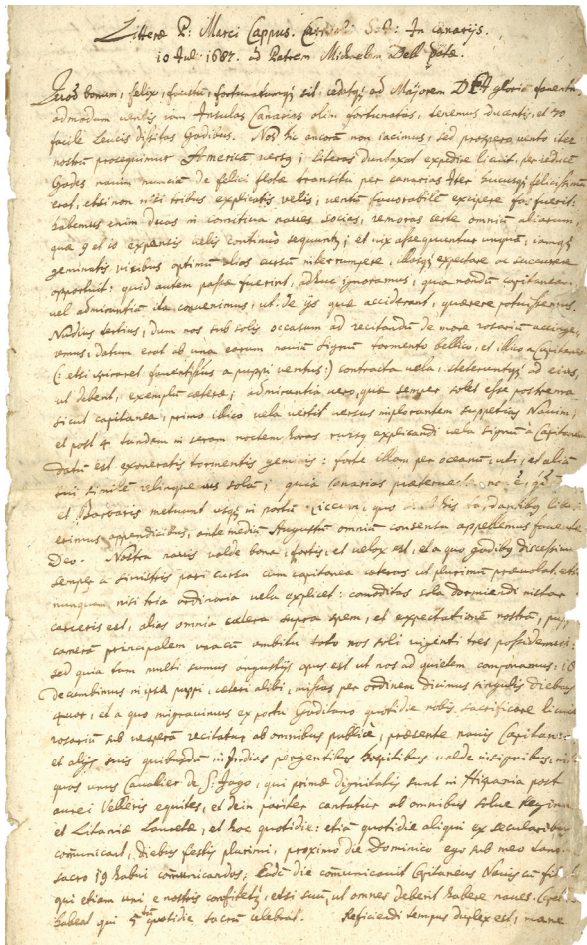 Litterae P: Marci Cappus. In canarijs.
10 Jul: 1687. ad Patrem Michaelem Dell
Quod bonum, felix, faustu, fortunatumq; sit, cedatq; ad Majorem DEI gloria
admodum ventis iam Insulas Canarias olim fortunatas, tenemus et 70
facile Leucis dissitas Gadibus. Nos hic ancora non iacimus, sed prospero vento iter
nostrum prosequimur America versq; literas duntaxat expedire licuit, per reduce
Gades navim nuncia de felici flotae transitu per canarias. Iter hucusq; felicissimu
erat, etsi non nisi tribus explicatis velis, ventu favorabile excipere fas fuerit.
habemus enim duas in comitiva naves socias, remoras certe omniu aliarum,
quae 9 et 10 expansis velis continuo sequuntr, et vix assequuntur unqua,
geminatis vicibus optimu alios cursu interrumpere, illasq; expectare ac succurere
opportuit: quid autem passae fuerint, adhuc ignoramus, quia nondu capitanea,
vel admirantia ita convenimus, ut de ijs quae acciderant, quaerere potuissemus.
Nudius tertius, dum nos sub solis occasum ad recitandu de more rosariu
datum erat ab una earum naviu signu tormento bellico, et illico a Capitanea
(: etsi spiraret a puppi ventus:) contracta vela, steteruntq; ad eius,
ut debent, exemplu caeterae; admirantia vero, quae semper solet esse postrema
sicut capitanea, primo illico vela vertit versus implorantem suppetias Navim,
et post 4 tandem in seram noctem horas rursq; explicandi vela signu a Capitanea
datu est exoneratis tormentis geminis: forte illam per oceanu, uti, et alia
sui simile relinquemus solu, quia Canarias
et Barbaris metuunt in portu quo
erimus appendicibus, ante mediu Augustu omniu consensu appellemus favente
Deo. Nostra navis valde bona, fortis, et velox est, et a quo gadibq; discessimus
semper a sinistris pari cursu cum capitanea caeteras ut plurimu praevolat, etsi
nunquam nisi tria ordinaria vela explicet: comoditas sola dormiendi instar
carceris est, alias omnia caetera supra spem, et expectatione nostra,
camera principalem vacuu ambitu toto nos soli viginti tres possidemus:
sed quia tam multi sumus angustijs opus est ut nos ad quietem componamus: 18
decumbimus in ipsa puppi, caeteri alibi, missas per ordinem dicimus singulis diebus
et a quo migravimus ex portu Gaditano quotidie nobis sacrificare licuit
rosariu sub vespera recitatur ab omnibus publice, praesente navis Capitaneo
et alijs suis quibusda in Indias pergentibus hospitibus valde insignibus, inter
quos unus Cavalier de S: Jago, qui primae dignitatis sunt in Hispania post
aurei Velleris equites, et dein pariter cantatur ab omnibus salve Regina
et Litaniae Lauretae, et hoc quotidie: etia quotidie aliqui ex secularibus
comunicant, diebus festis plurimi, proximo die Dominico ego sub meo
sacro 19 habui comunicandos; Eade die comunicavit Capitaneus Navis cu
qui etiam uni e nostris confitetr, etsi suu, ut omnes debent habere naves,
habeat qui quotidie sacru celebrat. Reficiendi tempus duplex est, mane